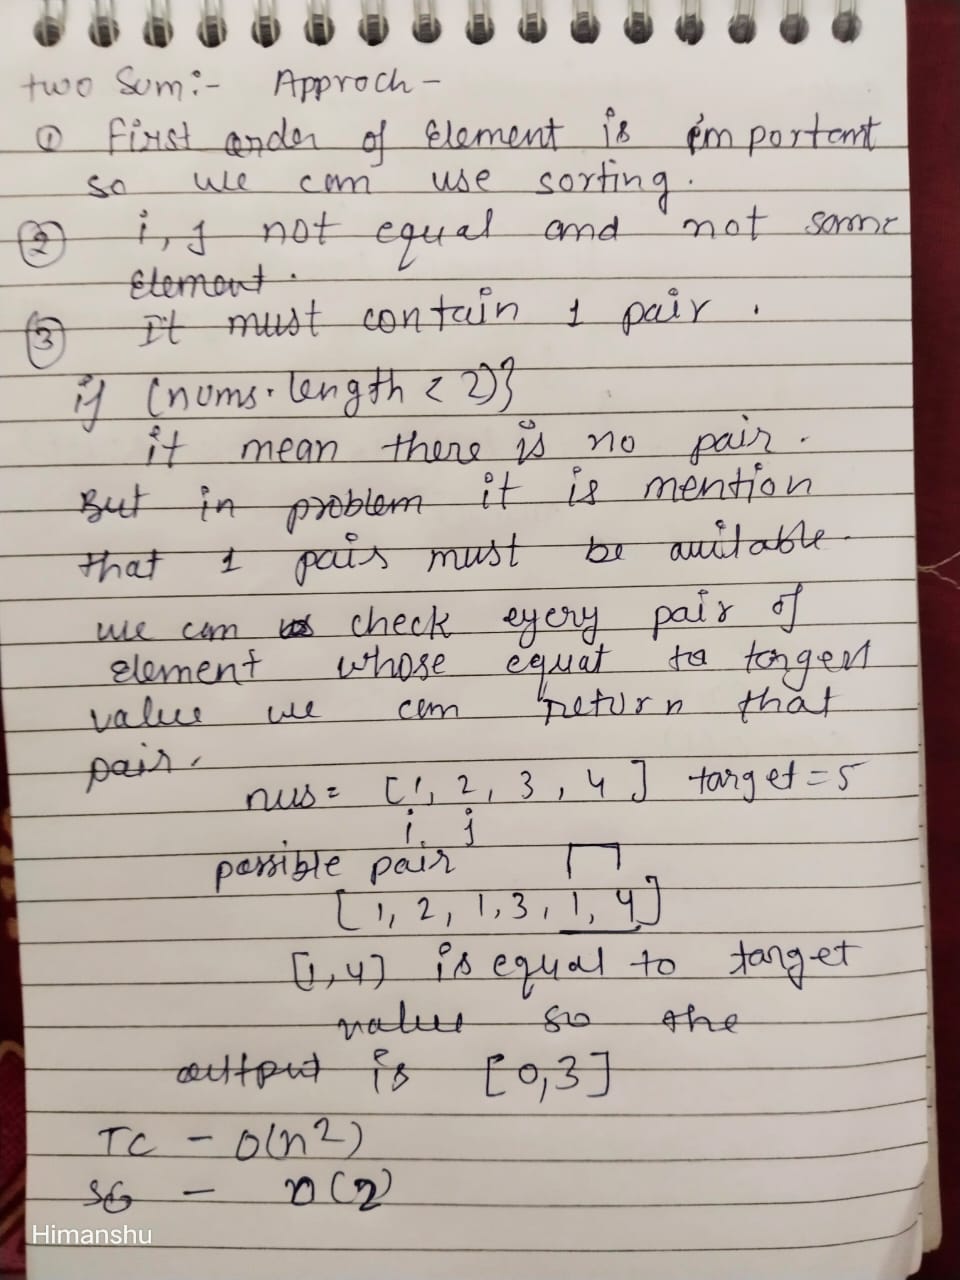 two Sum:- Approch -
① First order of Element is important
so we can use sorting.
② i, j not equal and not same
Element.
③ It must contain 1 pair.
if (nums.length < 2)}
it mean there is no pair.
But in problem it is mention
that 1 pair must be auilable.
we can check every pair of
element whose equal to target
value we can return that
pair.
nus = [1, 2, 3, 4] target = 5
i, j
possible pair
[1, 2, 1, 3, 1, 4]
[1, 4] is equal to target
value so the
output is [0,3]
TC - O(n2)
SC - O(2)
Himanshu